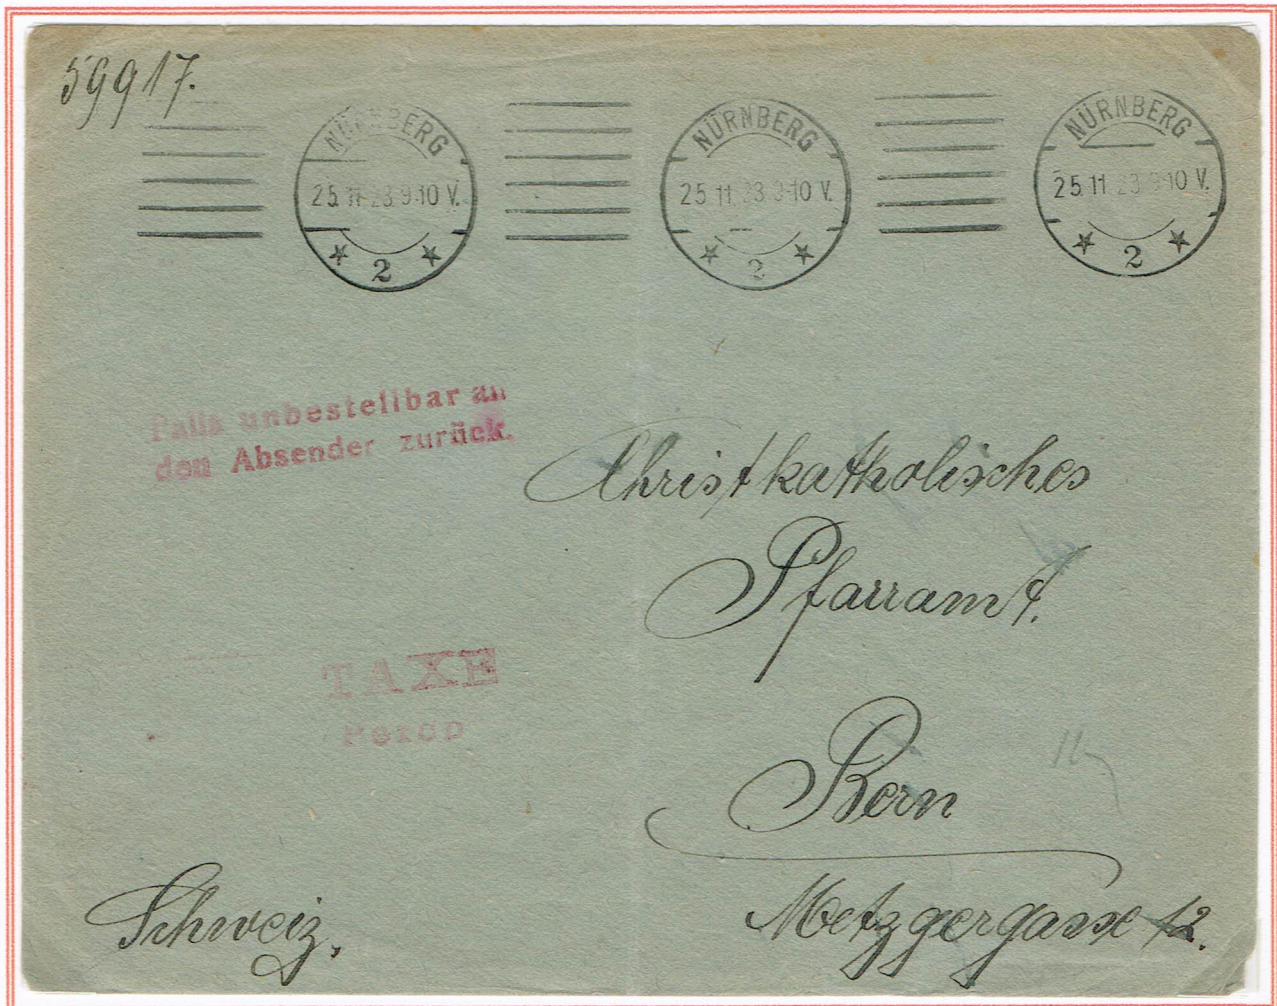 59917.
NÜRNBERG
25.11.23 9-10 V.
2
NÜRNBERG
25.11.23 9-10 V.
2
NÜRNBERG
25.11.23 9-10 V.
2
Falls unbestellbar an
den Absender zurück.
Christkatholisches
Pfarramt.
TAXE
Perco
Bern
Schweiz,
Metzgergasse 12.